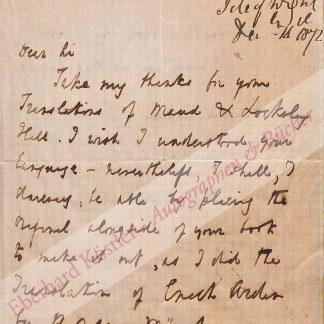 Isle of Wight
Dec 1872
Dear Sir
Take my thanks for your
Translations of Maud & Locksley
Hall. I wish I understood your
language – nevertheless I shall, I
daresay, be able by placing the
original alongside of your book
to make it out, as I did the
Translation of Enoch Arden
Eberhard Köstler Autographen & Bücher